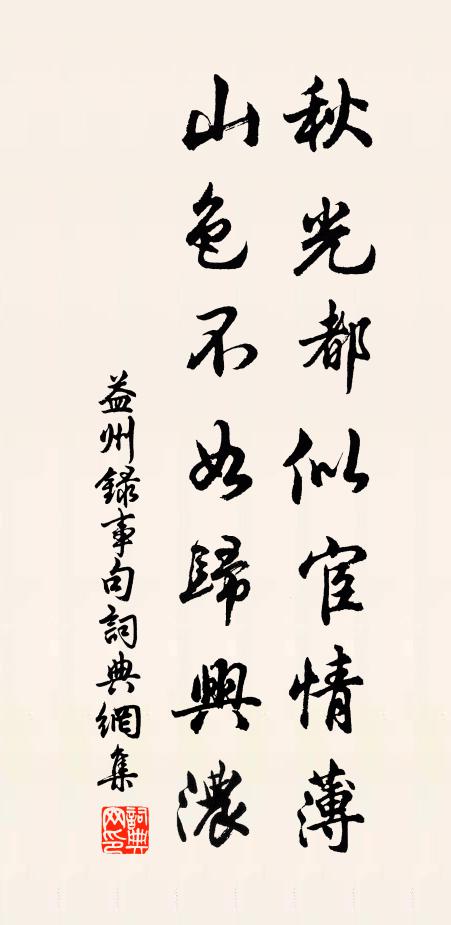 秋光都似宦情薄
山色不如歸興濃
益州録事句詞典網集
詞典網印